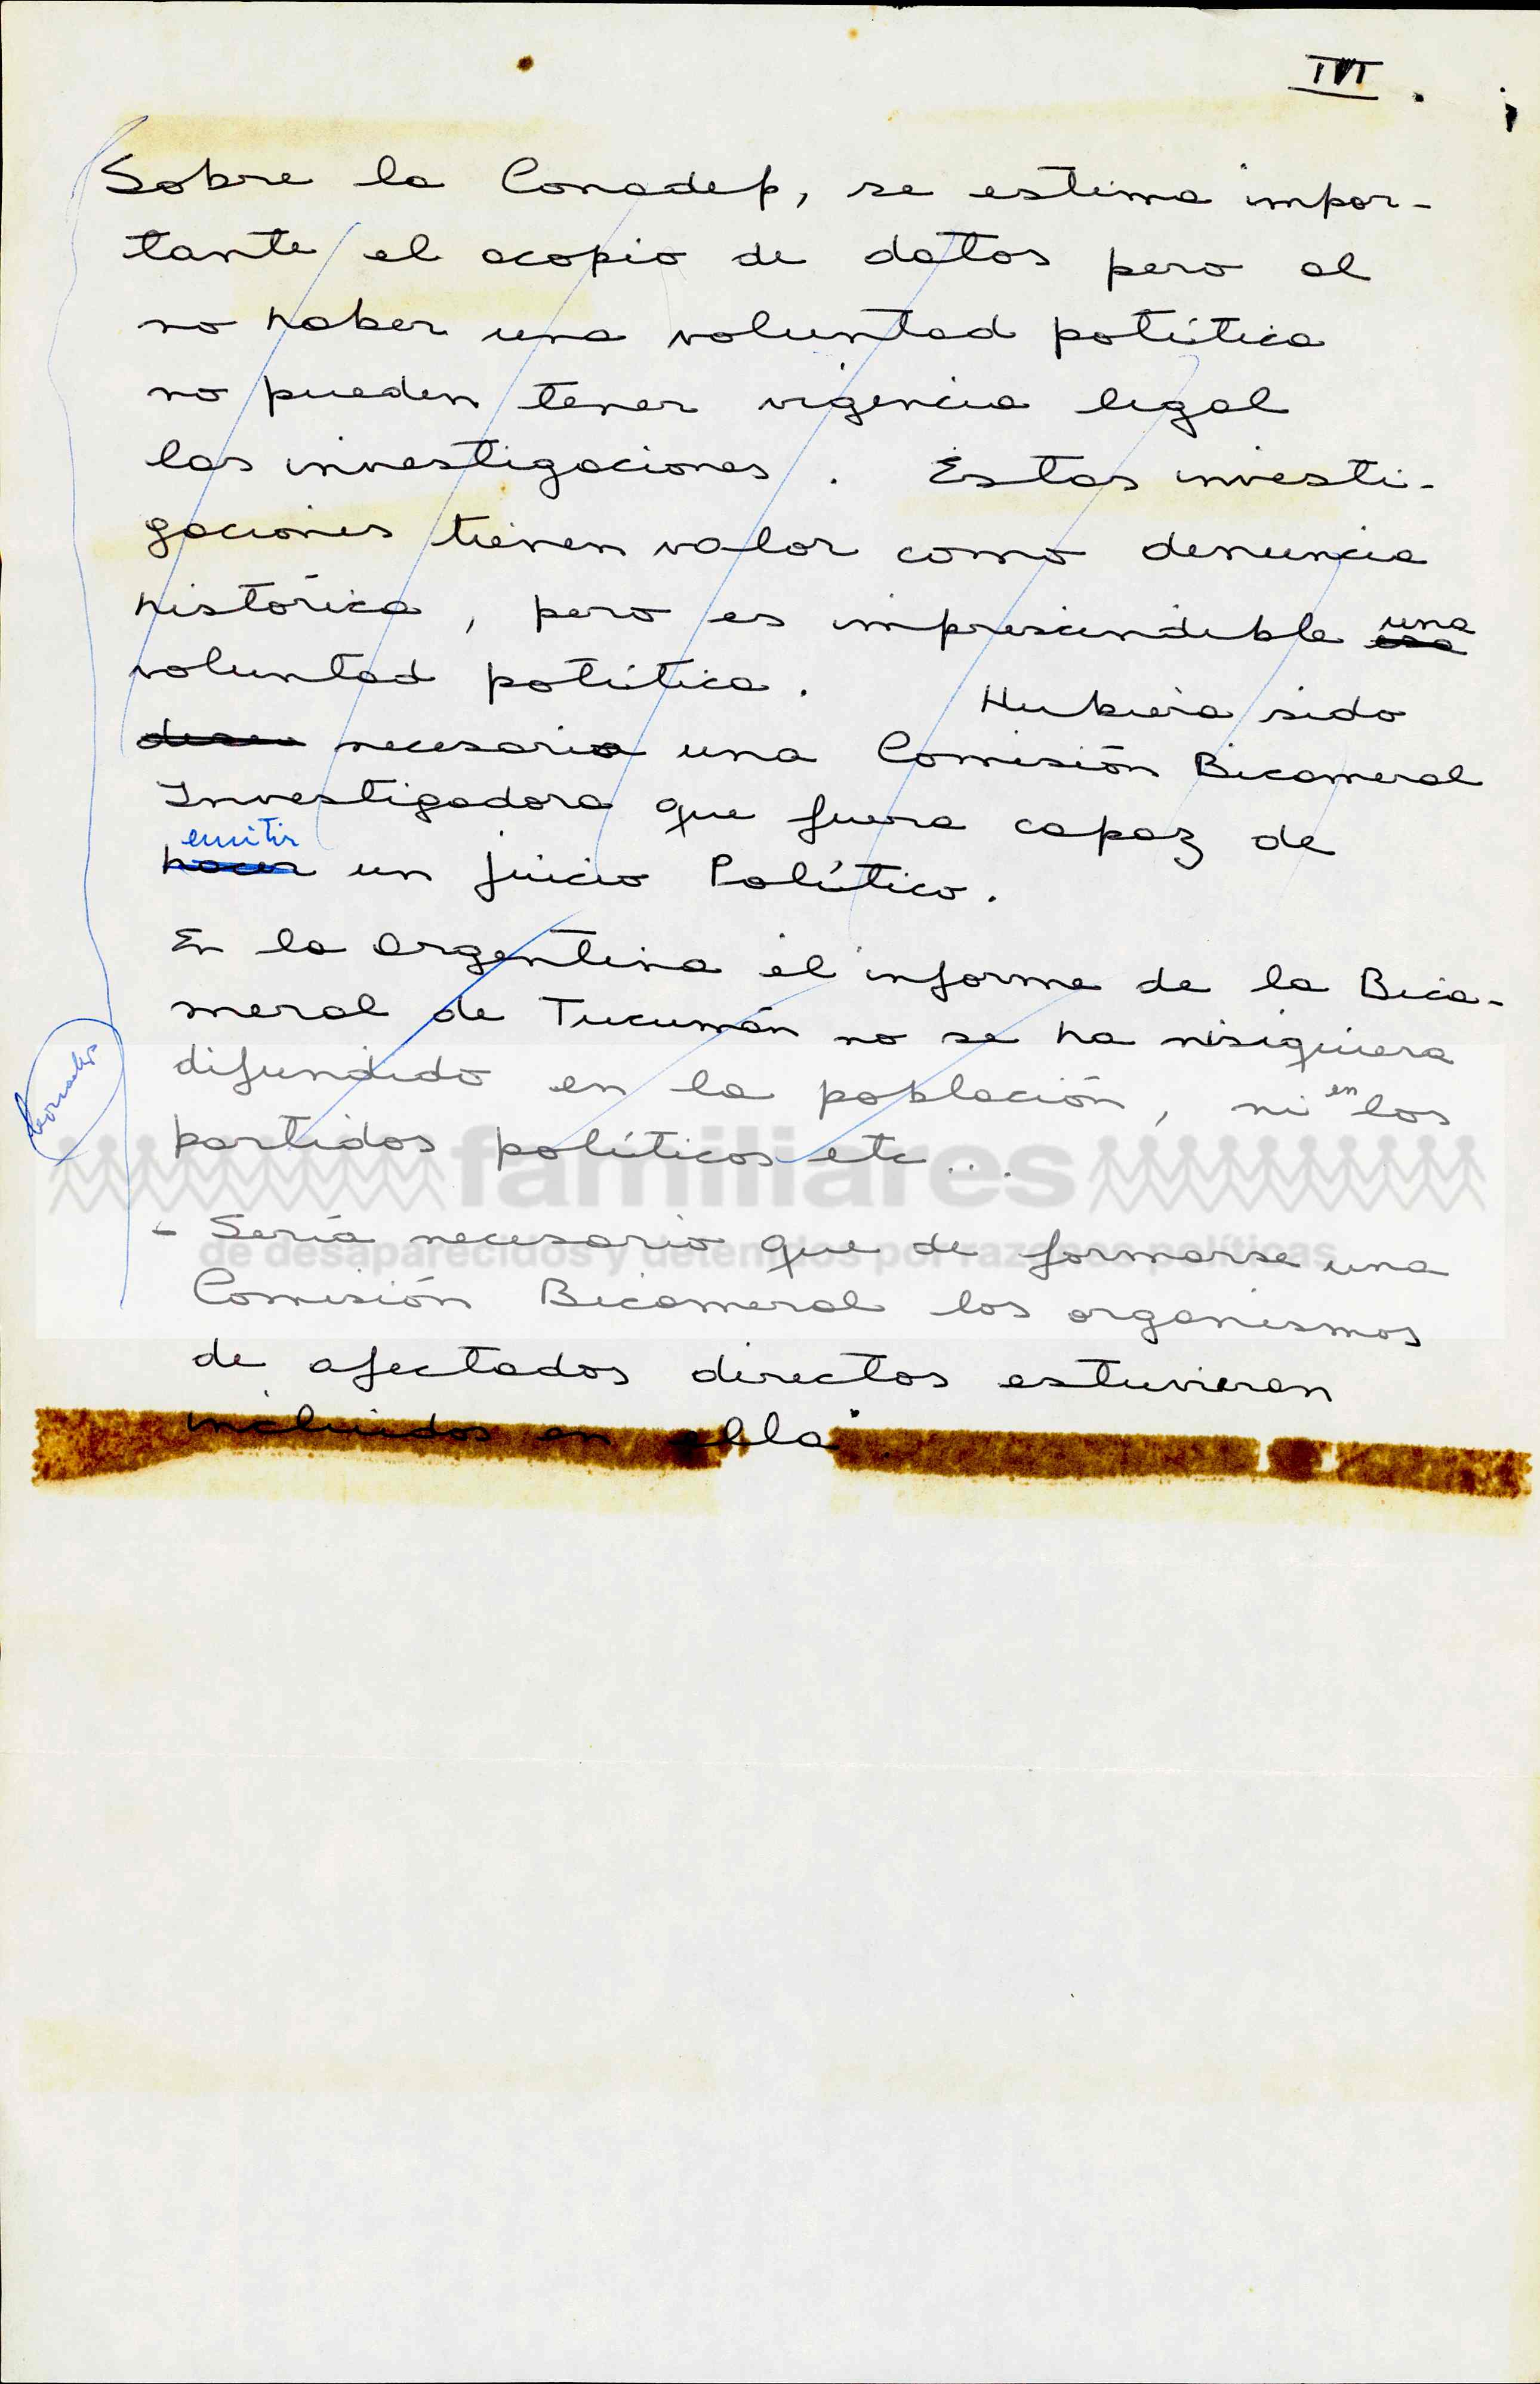 Sobre la Conadep, se estima impor-
tante el acopio de datos pero al
no haber una voluntad política
no pueden tener vigencia legal
las investigaciones. Estas investi-
gaciones tienen valor como denuncia
histórica, pero es imprescindible una
voluntad política. Hubiera sido
necesario una Comisión Bicameral
Investigadora que fuera capaz de
emitir
hacer un juicio Político.
En la Argentina el informe de la Bica-
meral de Tucumán no se ha nisiquiera
difundido en la población, ni en los
partidos políticos etc...
- Sería necesario que de formarse una
Comisión Bicameral los organismos
de afectados directos estuvieran
incluidos en ella.
familiares
de desaparecidos y detenidos por razones políticas